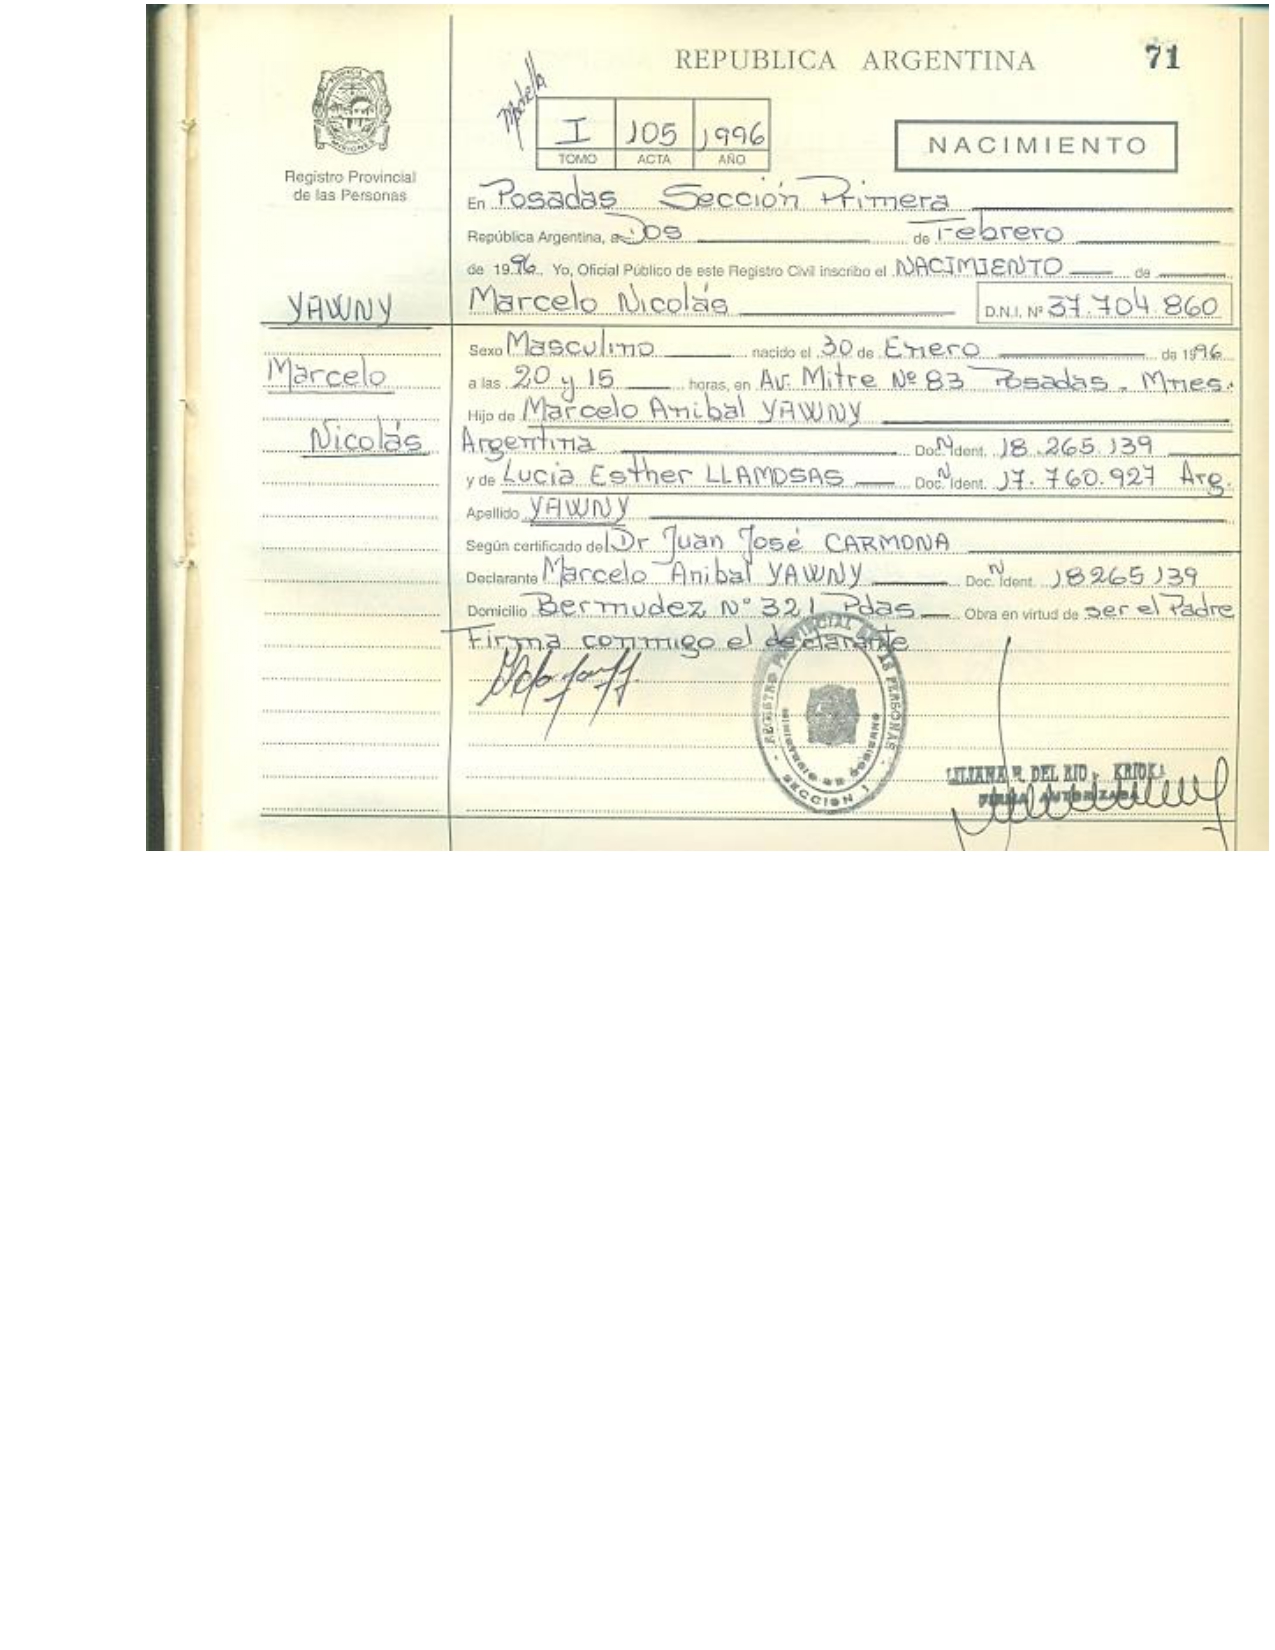 REPUBLICA ARGENTINA
71
I 105 1996
TOMO ACTA AÑO
NACIMIENTO
PROVINCIA DE MISIONES
Registro Provincial
de las Personas
YAWNY
Marcelo
Nicolás
En Posadas Sección Primera
República Argentina, a Dos de Febrero
de 1996. Yo, Oficial Público de este Registro Civil inscribo el NACIMIENTO de
Marcelo Nicolás D.N.I. Nº 37.704.860
Sexo Masculino nacido el 30 de Enero de 1996
a las 20 y 15 horas, en Av. Mitre Nº 83 Posadas - Mnes.
Hijo de Marcelo Anibal YAWNY
Argentina Doc. N Ident. 18.265.139
y de Lucia Esther LLAMOSAS Doc. N Ident. 17.760.927 Arg.
Apellido YAWNY
Según certificado del Dr Juan José CARMONA
Declarante Marcelo Anibal YAWNY Doc. N Ident. 18265139
Domicilio Bermudez N° 321 Pdas Obra en virtud de ser el Padre
Firma conmigo el declarante
REGISTRO PROVINCIAL DE LAS PERSONAS
MINISTERIO DE GOBIERNO
SECCION 1
LILIANA R. DEL RIO
FIRMA AUTORIZADA